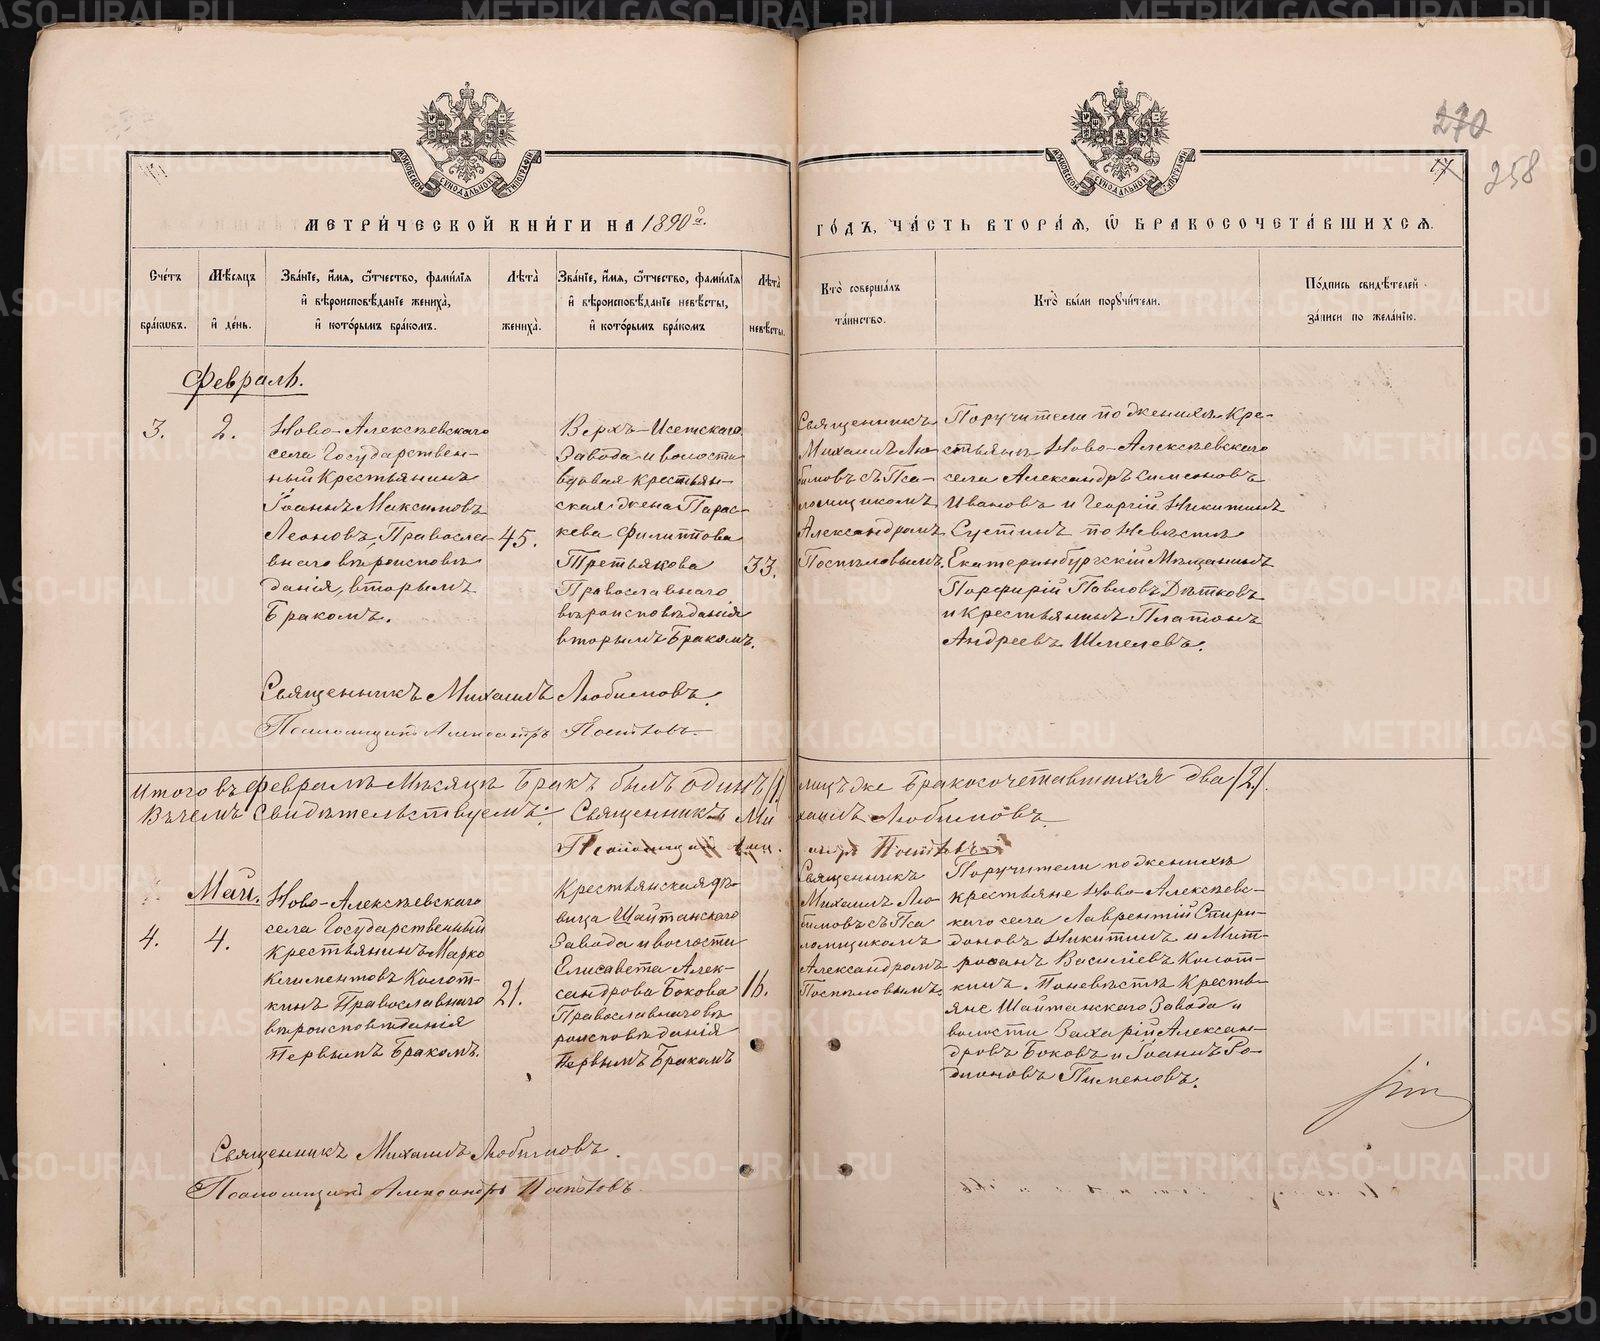 270
258
МОСКОВСКОЙ СѴНОДАЛЬНОЙ ТИПОГРАФІИ
МОСКОВСКОЙ СѴНОДАЛЬНОЙ ТИПОГРАФІИ
МЕТРИ́ЧЕСКОЙ КНИ́ГИ НА 1890 го.
ГО́ДЪ, ЧА́СТЬ ВТОРА́Я, Ѽ БРАКОСОЧЕТА́ВШИХСЯ.
Сче́тъ бра́кωвъ.
Мѣ́сяцъ и҆ де́нь.
Зва́нїе, и҆́мя, ѻ҆́тчество, фами́лїя и҆ вѣроисповѣ́данїе жениха̀, и҆ кото́рымъ бра́комъ.
Лѣ́та жениха̀.
Зва́нїе, и҆́мя, ѻ҆́тчество, фами́лїя и҆ вѣроисповѣ́данїе невѣ́сты, и҆ кото́рымъ бра́комъ
Лѣ́та невѣ́сты.
Кто̀ соверша́лъ та́инство.
Кто̀ бы́ли пору́чители.
По́дпись свидѣ́телей за́писи по жела́нїю.
Февраль.
3.
2.
Ново-Алексѣевскаго
села Государствен-
ный Крестьянинъ
Іоаннъ Максимовъ
Леоновъ, Правосла-
внаго вѣроисповѣ
данія, вторымъ
Бракомъ.
45.
Верхъ-Исетскаго
Завода и волости
вдовая крестьян-
ская жена Парас-
кева Филиппова
Третьякова
Православнаго
вѣроисповѣданія
вторымъ Бракомъ.
33.
Священникъ
Михаилъ Лю-
бимовъ съ Пса-
ломщикомъ
Александромъ
Поспѣловымъ.
Поручители по женихѣ Кре-
стьяне Ново-Алексѣевскаго
села Александръ Симеоновъ
Ивановъ и Георгій Никитинъ
Сустинъ по Невѣстѣ
Екатеринбургскій Мѣщанинъ
Порфирій Павловъ Дѣтковъ
и Крестьянинъ Платонъ
Андреевъ Шмелевъ.
Священникъ Михаилъ Любимовъ.
Псаломщикъ Александръ Поспѣловъ.
Итого въ Февралѣ Мѣсяцѣ Бракъ былъ одинъ /1./ лицъ же Бракосочетавшихся два /2./.
Въ чемъ Свидѣтельствуемъ: Священникъ Михаилъ Любимовъ.
Псаломщикъ Алек. Поспѣловъ
Май.
4.
4.
Ново-Алексѣевскаго
села Государственный
Крестьянинъ Марко
Климентовъ Колот-
кинъ Православнаго
вѣроисповѣданія
Первымъ Бракомъ.
21.
Крестьянская дѣ-
вица Шайтанскаго
Завода и волости
Елисавета Алек-
сандрова Бокова
Православнаго вѣ
роисповѣданія
Первымъ Бракомъ
16.
Священникъ
Михаилъ Лю-
бимовъ съ Пса
ломщикомъ
Александромъ
Поспѣловымъ.
Поручители по женихѣ
крестьяне Ново-Алексѣевс-
каго села Лаврентій Спири-
доновъ Никитинъ и Мит-
рофанъ Васильевъ Колот-
кинъ. По невѣстѣ Кресть-
яне Шайтанскаго Завода и
волости Захарій Алексан-
дровъ Боковъ и Іоаннъ Ро-
діоновъ Пименовъ.
Священникъ Михаилъ Любимовъ.
Псаломщикъ Александръ Поспѣловъ.
METRIKI.GASO-URAL.RU